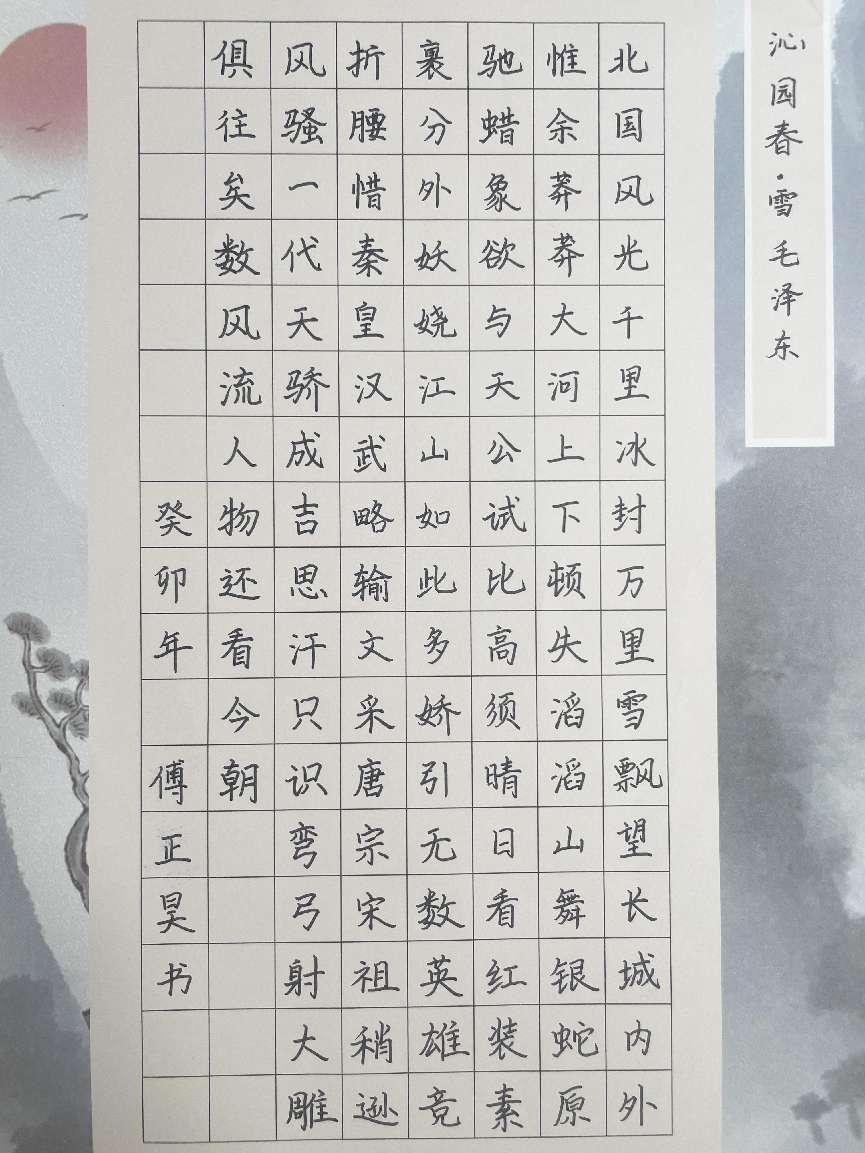 沁园春·雪 毛泽东
北国风光千里冰封万里雪飘望长城内外
惟余莽莽大河上下顿失滔滔山舞银蛇原
驰蜡象欲与天公试比高须晴日看红装素
裹分外妖娆江山如此多娇引无数英雄竞
折腰惜秦皇汉武略输文采唐宗宋祖稍逊
风骚一代天骄成吉思汗只识弯弓射大雕
俱往矣数风流人物还看今朝
癸卯年 傅正昊书